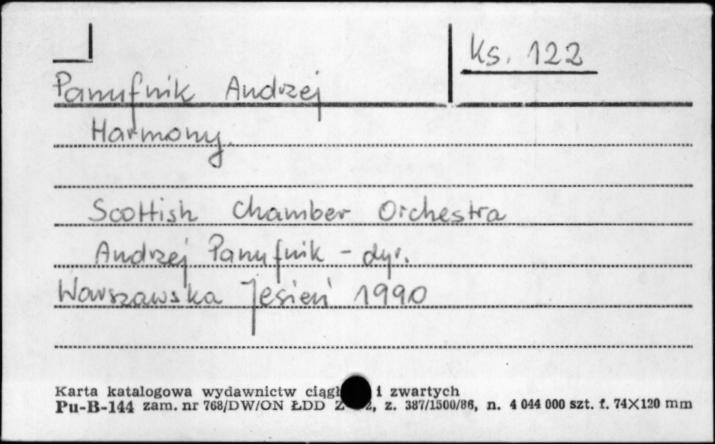 Ks. 122
Panufnik Andrzej
Harmony.
Scottish Chamber Orchestra
Andrzej Panufnik - dyr.
Warszawska Jesień 1990
Karta katalogowa wydawnictw i zwartych
Pu-B-144 zam. nr 768/DW/ON ŁDD z. 387/1500/86, n. 4 044 000 szt. f. 74×120 mm